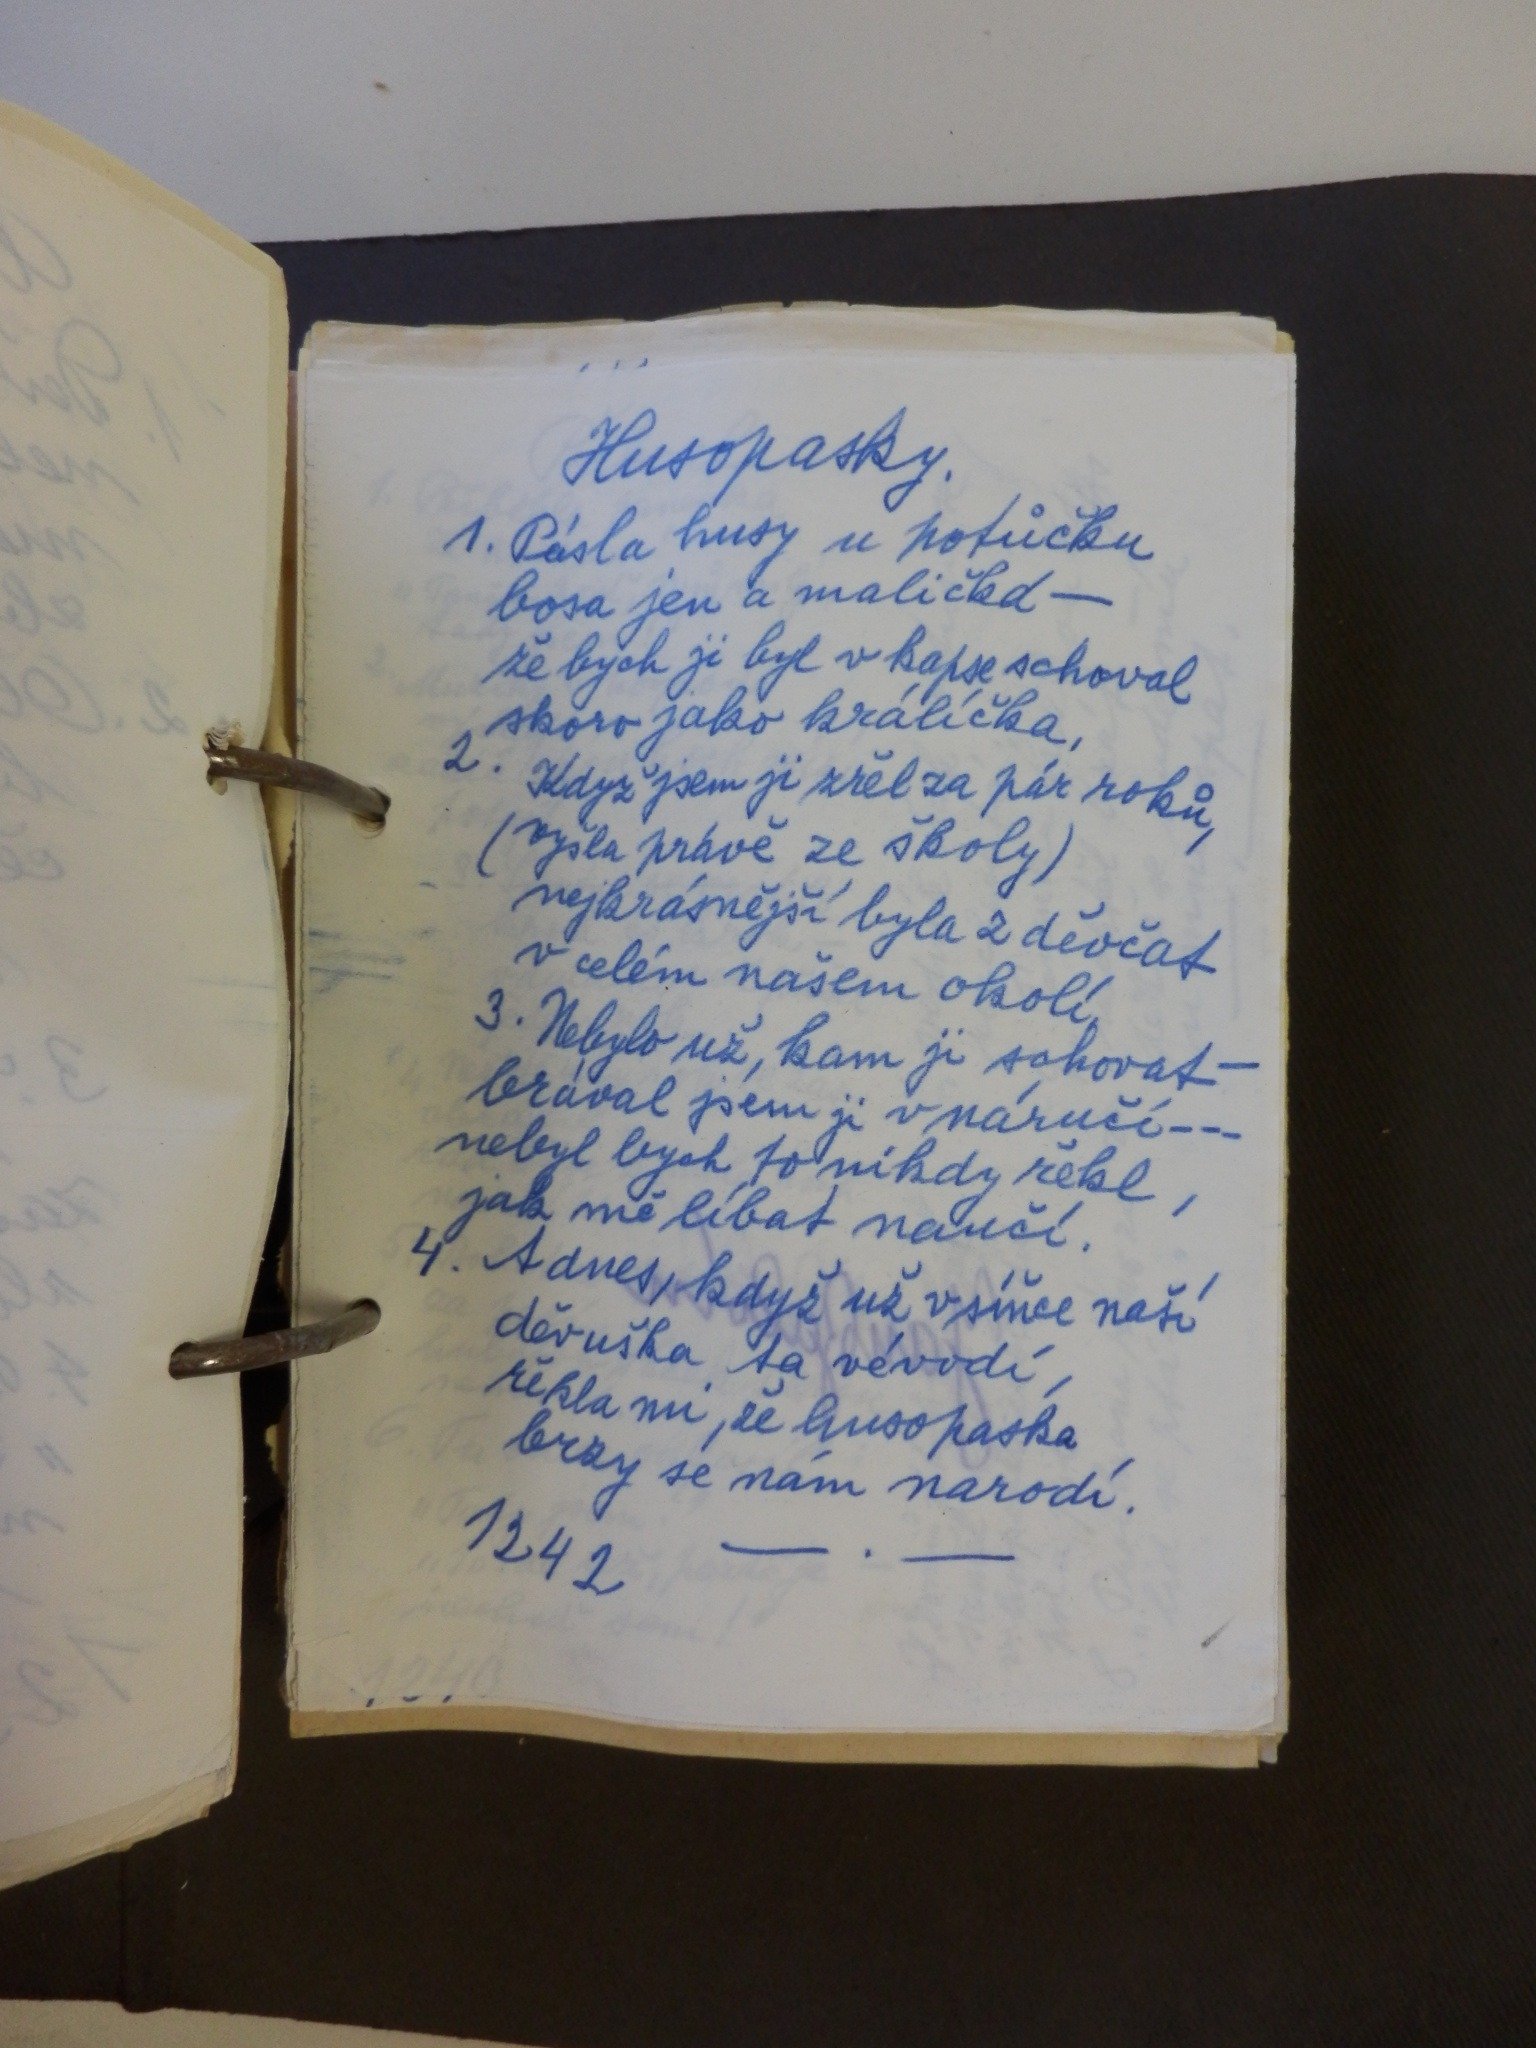 Husopasky.
1. Pásla husy u potůčku
bosa jen a maličká —
že bych ji byl v kapse schoval
skoro jako králíčka,
2. Když jsem ji zřel za pár roků,
(vyšla právě ze školy)
nejkrásnější byla z děvčat
v celém našem okolí,
3. Nebylo už, kam ji schovat —
brával jsem ji v náručí ---
nebyl bych to nikdy řekl,
jak mě líbat naučí.
4. A dnes, když už v síňce naší
děvuška ta vévodí,
řekla mi, že husopaska
brzy se nám narodí.
1242 — . —